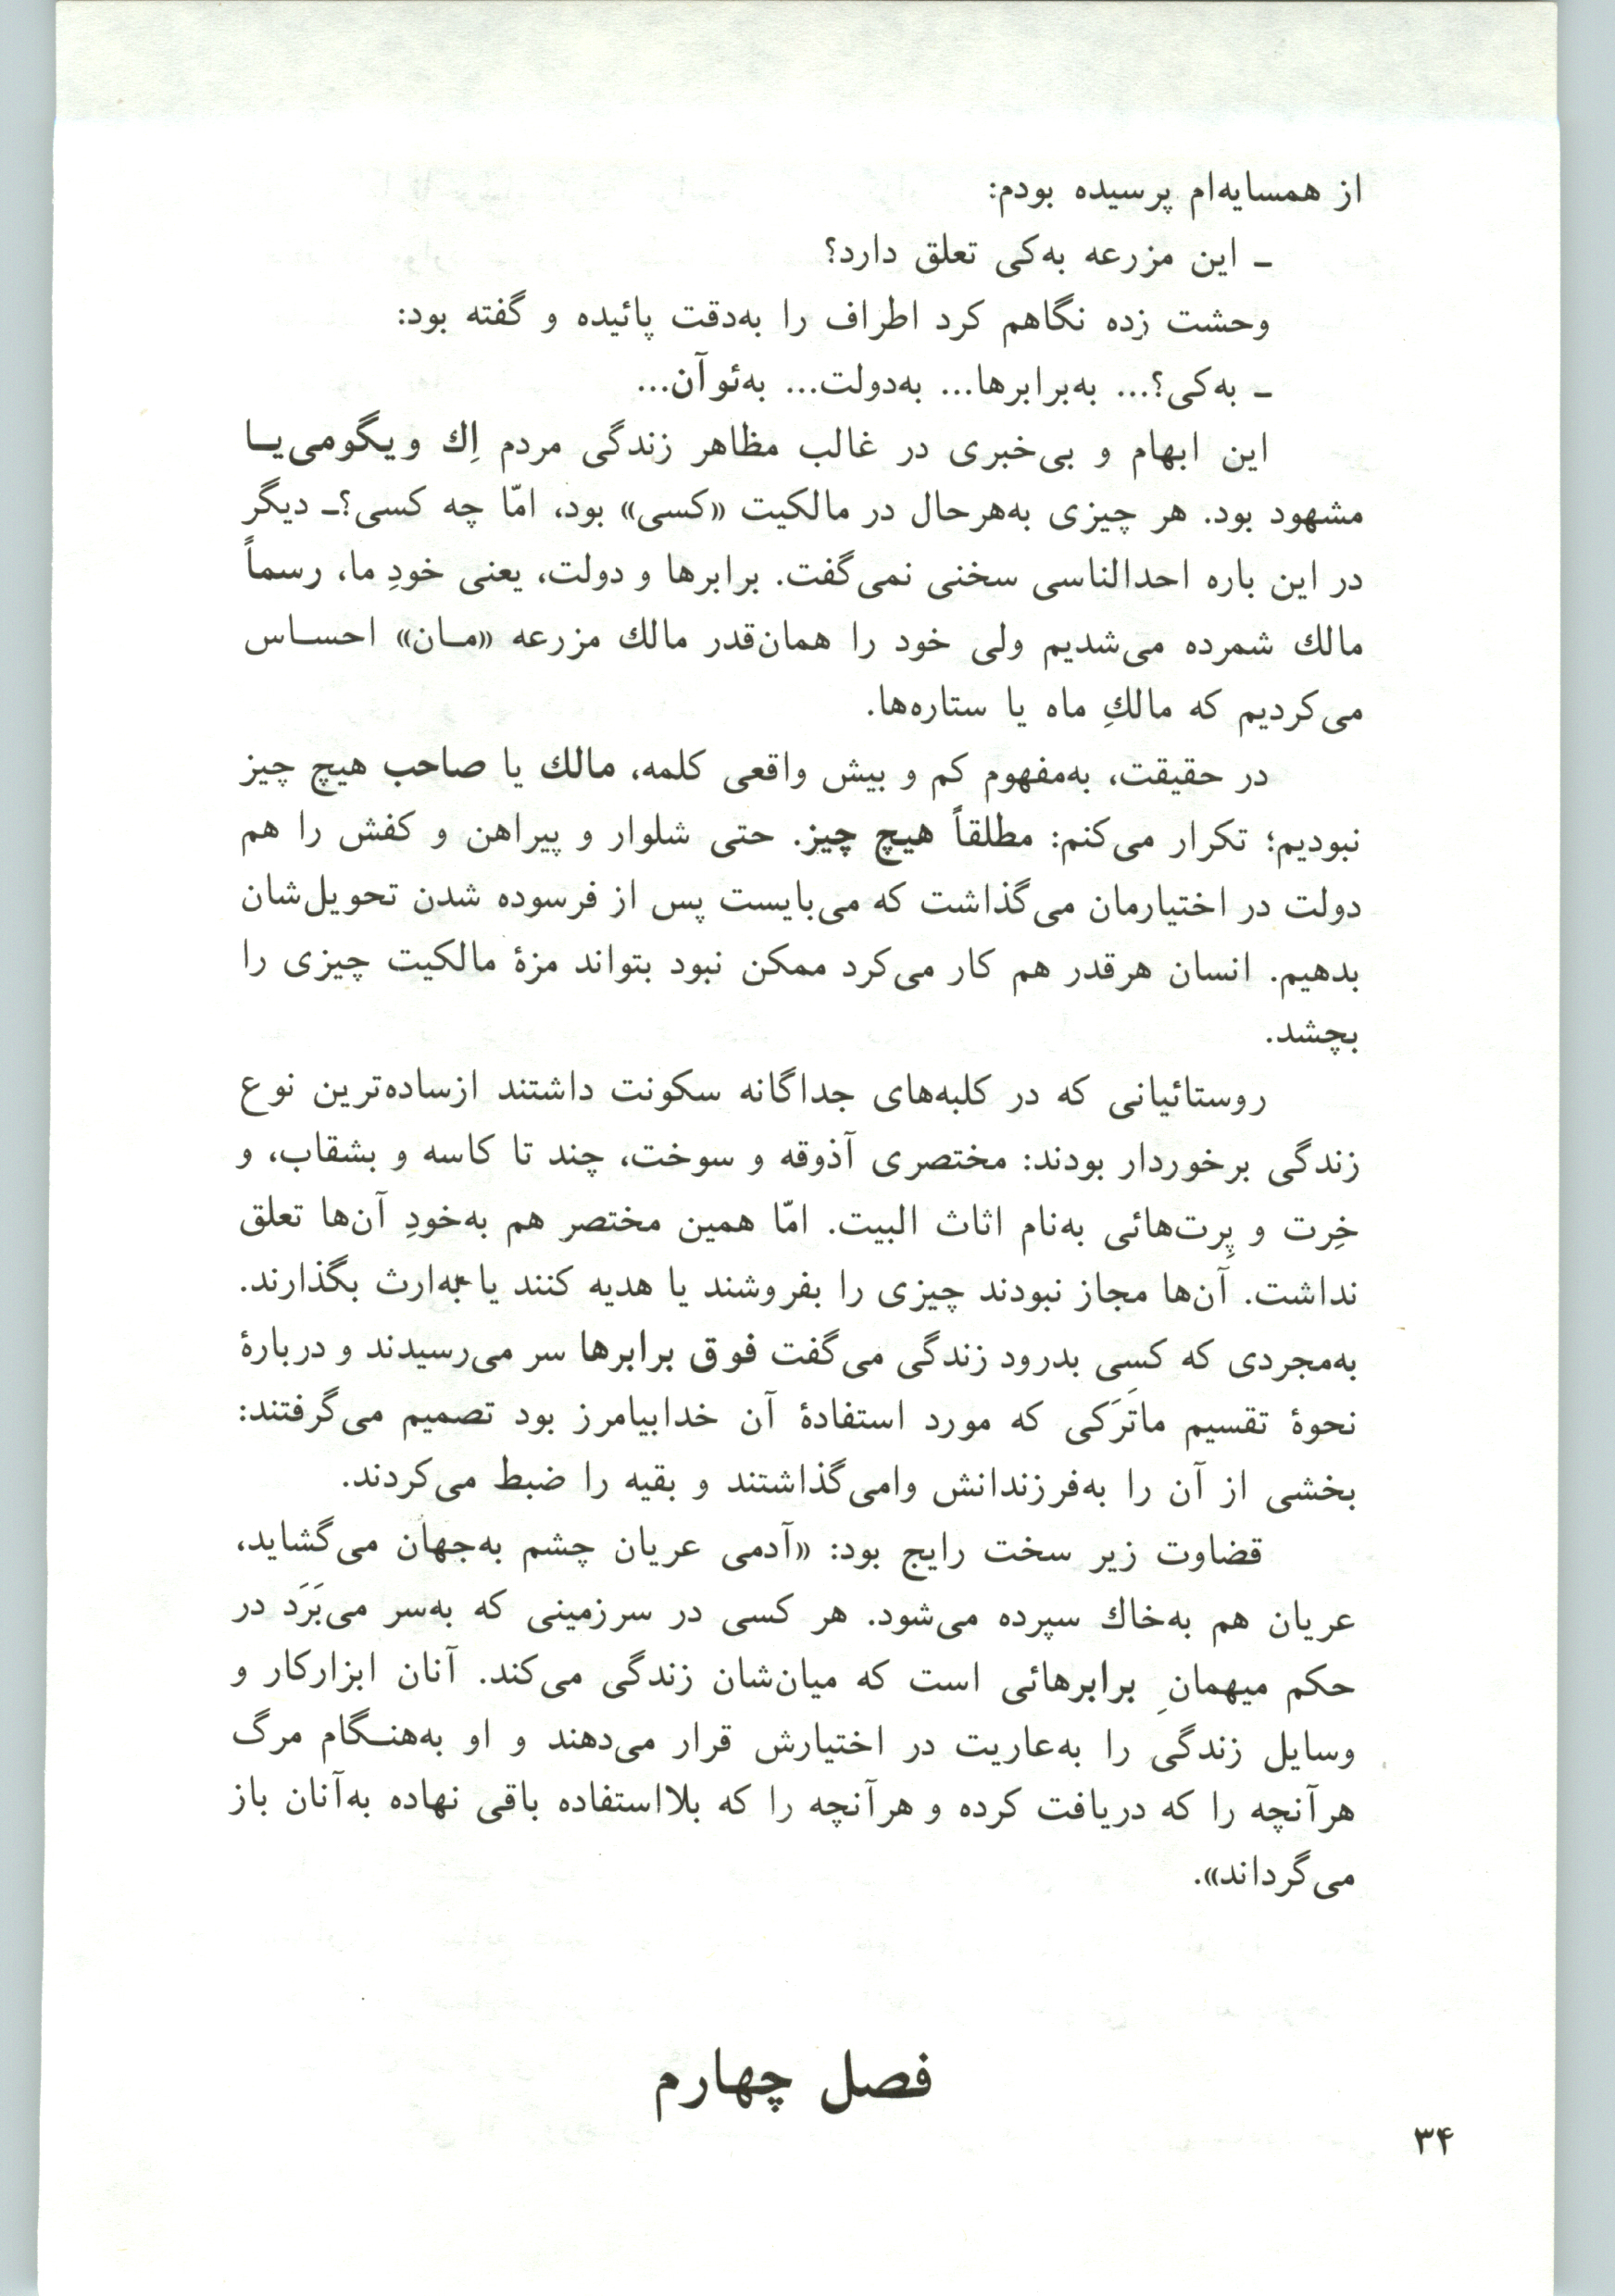 از همسایه‌ام پرسیده بودم:
ـ این مزرعه به‌کی تعلق دارد؟
وحشت زده نگاهم کرد اطراف را به‌دقت پائیده و گفته بود:
ـ به‌کی؟... به‌برابرها... به‌دولت... به‌ئوآن...
این ابهام و بی‌خبری در غالب مظاهر زندگی مردم اِك ویگومی‌یـا
مشهود بود. هر چیزی به‌هرحال در مالکیت «کسی» بود، امّا چه کسی؟ـ دیگر
در این باره احدالناسی سخنی نمی‌گفت. برابرها و دولت، یعنی خودِ ما، رسماً
مالك شمرده می‌شدیم ولی خود را همان‌قدر مالك مزرعه «مـان» احسـاس
می‌کردیم که مالكِ ماه یا ستاره‌ها.
در حقیقت، به‌مفهوم کم و بیش واقعی کلمه، مالك یا صاحب هیچ چیز
نبودیم؛ تکرار می‌کنم: مطلقاً هیچ چیز. حتی شلوار و پیراهن و کفش را هم
دولت در اختیارمان می‌گذاشت که می‌بایست پس از فرسوده شدن تحویل‌شان
بدهیم. انسان هرقدر هم کار می‌کرد ممکن نبود بتواند مزهٔ مالکیت چیزی را
بچشد.
روستائیانی که در کلبه‌های جداگانه سکونت داشتند ازساده‌ترین نوع
زندگی برخوردار بودند: مختصری آذوقه و سوخت، چند تا کاسه و بشقاب، و
خِرت و پِرت‌هائی به‌نام اثاث البیت. امّا همین مختصر هم به‌خودِ آن‌ها تعلق
نداشت. آن‌ها مجاز نبودند چیزی را بفروشند یا هدیه کنند یا به‌ارث بگذارند.
به‌مجردی که کسی بدرود زندگی می‌گفت فوق برابرها سر می‌رسیدند و دربارهٔ
نحوهٔ تقسیم ماتَرَکی که مورد استفادهٔ آن خدابیامرز بود تصمیم می‌گرفتند:
بخشی از آن را به‌فرزندانش وامی‌گذاشتند و بقیه را ضبط می‌کردند.
قضاوت زیر سخت رایج بود: «آدمی عریان چشم به‌جهان می‌گشاید،
عریان هم به‌خاك سپرده می‌شود. هر کسی در سرزمینی که به‌سر می‌بَرَد در
حکم میهمانِ برابرهائی است که میان‌شان زندگی می‌کند. آنان ابزارکار و
وسایل زندگی را به‌عاریت در اختیارش قرار می‌دهند و او به‌هنـگام مرگ
هرآنچه را که دریافت کرده و هرآنچه را که بلااستفاده باقی نهاده به‌آنان باز
می‌گرداند».
فصل چهارم
۳۴